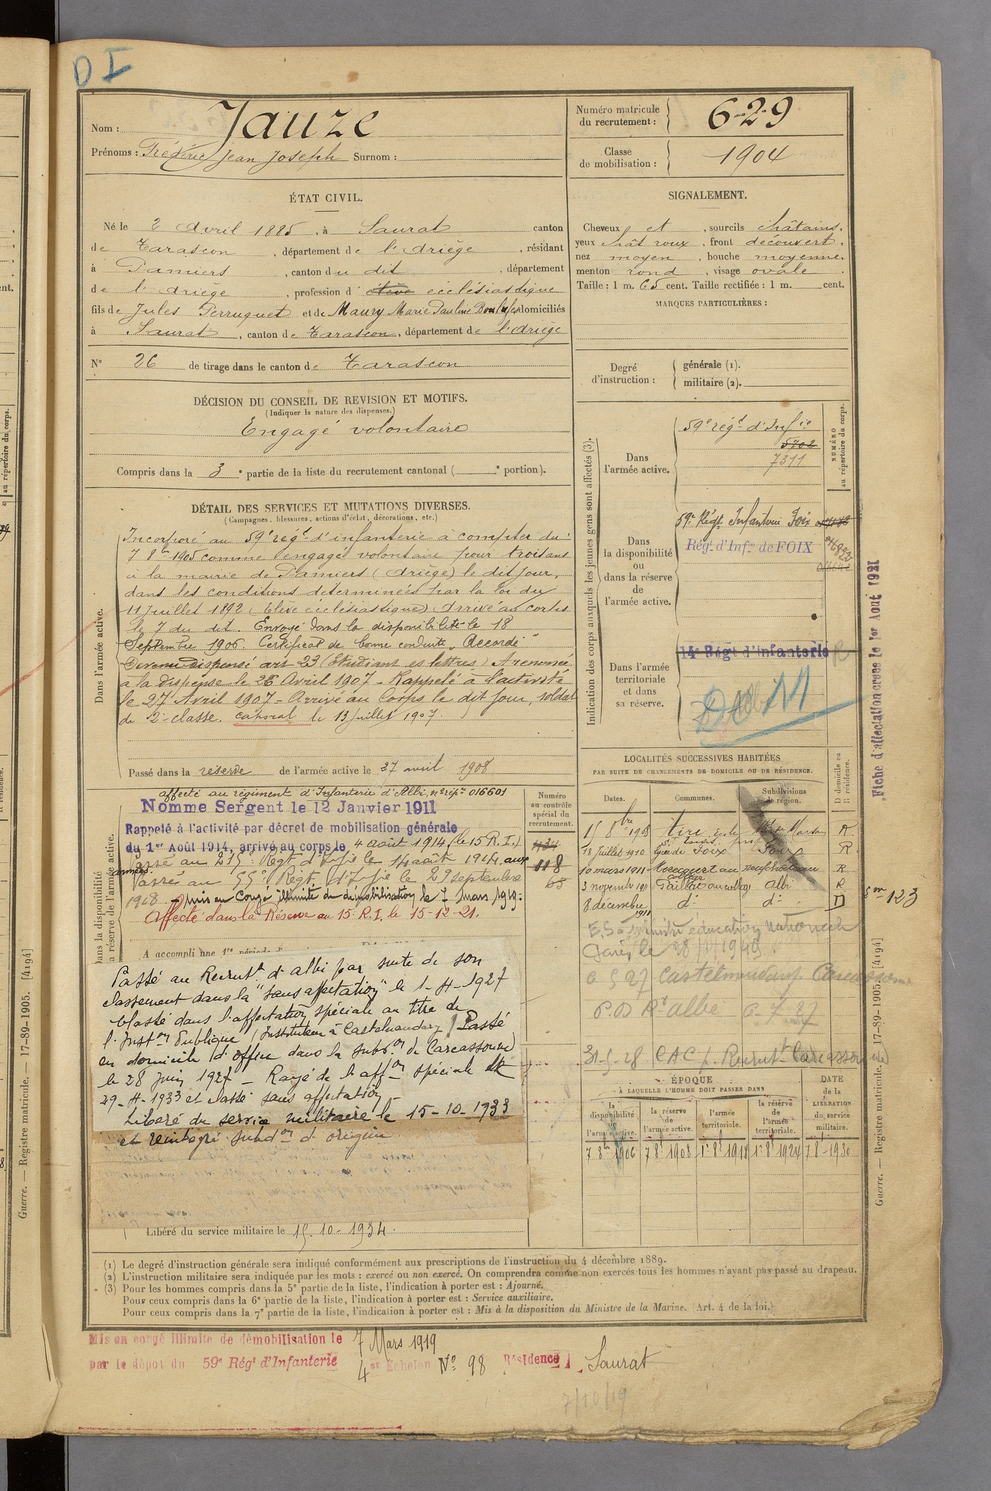 D I
Nom : Jauze
Prénoms : Frédéric Jean Joseph Surnom :
Numéro matricule du recrutement : 629
Classe de mobilisation : 1904
ÉTAT CIVIL.
Né le 2 Avril 1885, à Saurat canton
de Tarascon, département de l'Ariège, résidant
à Pamiers, canton du dit, département
de l'Ariège, profession d' élève ecclésiastique
fils de Jules Perruquet et de Maury Marie Pauline domiciliés
à Saurat, canton de Tarascon, département de l'Ariège
N° 26 de tirage dans le canton de Tarascon
SIGNALEMENT.
Cheveux et, sourcils châtains,
yeux chât roux, front découvert,
nez moyen, bouche moyenne,
menton rond, visage ovale.
Taille : 1 m. 65 cent. Taille rectifiée : 1 m. cent.
MARQUES PARTICULIÈRES :
DÉCISION DU CONSEIL DE REVISION ET MOTIFS.
(Indiquer la nature des dispenses.)
Engagé volontaire
Compris dans la 3e partie de la liste du recrutement cantonal ( e portion).
Degré d'instruction :
générale (1).
militaire (2).
DÉTAIL DES SERVICES ET MUTATIONS DIVERSES.
(Campagnes, blessures, actions d'éclat, décorations, etc.)
Dans l'armée active.
Incorporé au 59e régt d'infanterie à compter du
7 8bre 1905 comme engagé volontaire pour trois ans
à la mairie de Pamiers (Ariège) le dit jour,
dans les conditions déterminées par la loi du
11 juillet 1892 (Elève ecclésiastique) Arrivé au corps
le 7 du dit. Envoyé dans la disponibilité le 18
Septembre 1906. Certificat de bonne conduite "Accordé"
Devenu dispensé art 23 (Etudiant es lettres) A renoncé
à la dispense le 26 Avril 1907 - Rappelé à l'activité
le 27 Avril 1907 - Arrivé au Corps le dit jour, soldat
de 2e classe. Caporal le 13 juillet 1907
Passé dans la réserve de l'armée active le 27 avril 1908
affecté au régiment d'Infanterie d'Albi, n° rép. 016601
Nommé Sergent le 12 Janvier 1911
Rappelé à l'activité par décret de mobilisation générale
du 1er Août 1914, arrivé au corps le 4 août 1914 (le 15 R.I.)
Passé au 215e Régt d'Inf le 14 août 1914, aux armées.
Passé au 55e Régt d'Inf le 29 septembre
1918. Mis en Congé illimité de démobilisation le 7 Mars 1919.
Affecté dans la Réserve au 15 R.I. le 15-12-21.
Passé au Recrutt d'Albi par suite de son
classement dans la "sans affectation" le 1-4-1927
Classé dans l'affectation spéciale au titre de
l'Instron Publique (Instituteur à Castelnaudary) Passé
en domicile d'office dans la subdon de Carcassonne
le 28 Juin 1927 - Rayé de l'affon spéciale le
29-4-1933 et classé sans affectation
Libéré du service militaire le 15-10-1933
et réintégré subdon d'origine
Libéré du service militaire le 15-10-1934.
Numéro au contrôle spécial du recrutement.
118
Indication des corps auxquels les jeunes gens sont affectés (3).
NUMÉRO au répertoire du corps.
Dans l'armée active.
59e régt d'Infie
5702
7311
Dans la disponibilité ou dans la réserve de l'armée active.
59e Régt Infanterie Foix
Régt d'Infie de FOIX
Dans l'armée territoriale et dans sa réserve.
14e Régt d'Infanterie
"Fiche d'affectation créée le 1er Août 1921
LOCALITÉS SUCCESSIVES HABITÉES
PAR SUITE DE CHANGEMENTS DE DOMICILE OU DE RÉSIDENCE.
Dates. Communes. Subdivisions de région. D domicile ou R résidence.
10 mars 1911
3 novembre 1911 Gaillac Albi R
8 décembre 1911 d° d° D
5m 123
Castelnaudary Carcassonne
31-5-28 CAC Recrutt Carcassonne
ÉPOQUE À LAQUELLE L'HOMME DOIT PASSER DANS
la disponibilité de l'armée active.
la réserve de l'armée active.
l'armée territoriale.
la réserve de l'armée territoriale.
DATE de la LIBÉRATION du service militaire.
7 8bre 1906 7 8bre 1908 1r 8bre 1918 1r 8bre 1924 7 8bre 1930
(1) Le degré d'instruction générale sera indiqué conformément aux prescriptions de l'instruction du 4 décembre 1889.
(2) L'instruction militaire sera indiquée par les mots : exercé ou non exercé. On comprendra comme non exercés tous les hommes n'ayant pas passé au drapeau.
(3) Pour les hommes compris dans la 5e partie de la liste, l'indication à porter est : Ajourné.
Pour ceux compris dans la 6e partie de la liste, l'indication à porter est : Service auxiliaire.
Pour ceux compris dans la 7e partie de la liste, l'indication à porter est : Mis à la disposition du Ministre de la Marine. (Art. 4 de la loi.)
Mis en congé illimité de démobilisation le 7 Mars 1919
par le dépôt du 59e Régt d'Infanterie 4e Echelon N° 98 Résidence Saurat
7/10/19
Guerre. — Registre matricule. — 17-89-1905. [4194]
Guerre. — Registre matricule. — 17-89-1905. [4194]